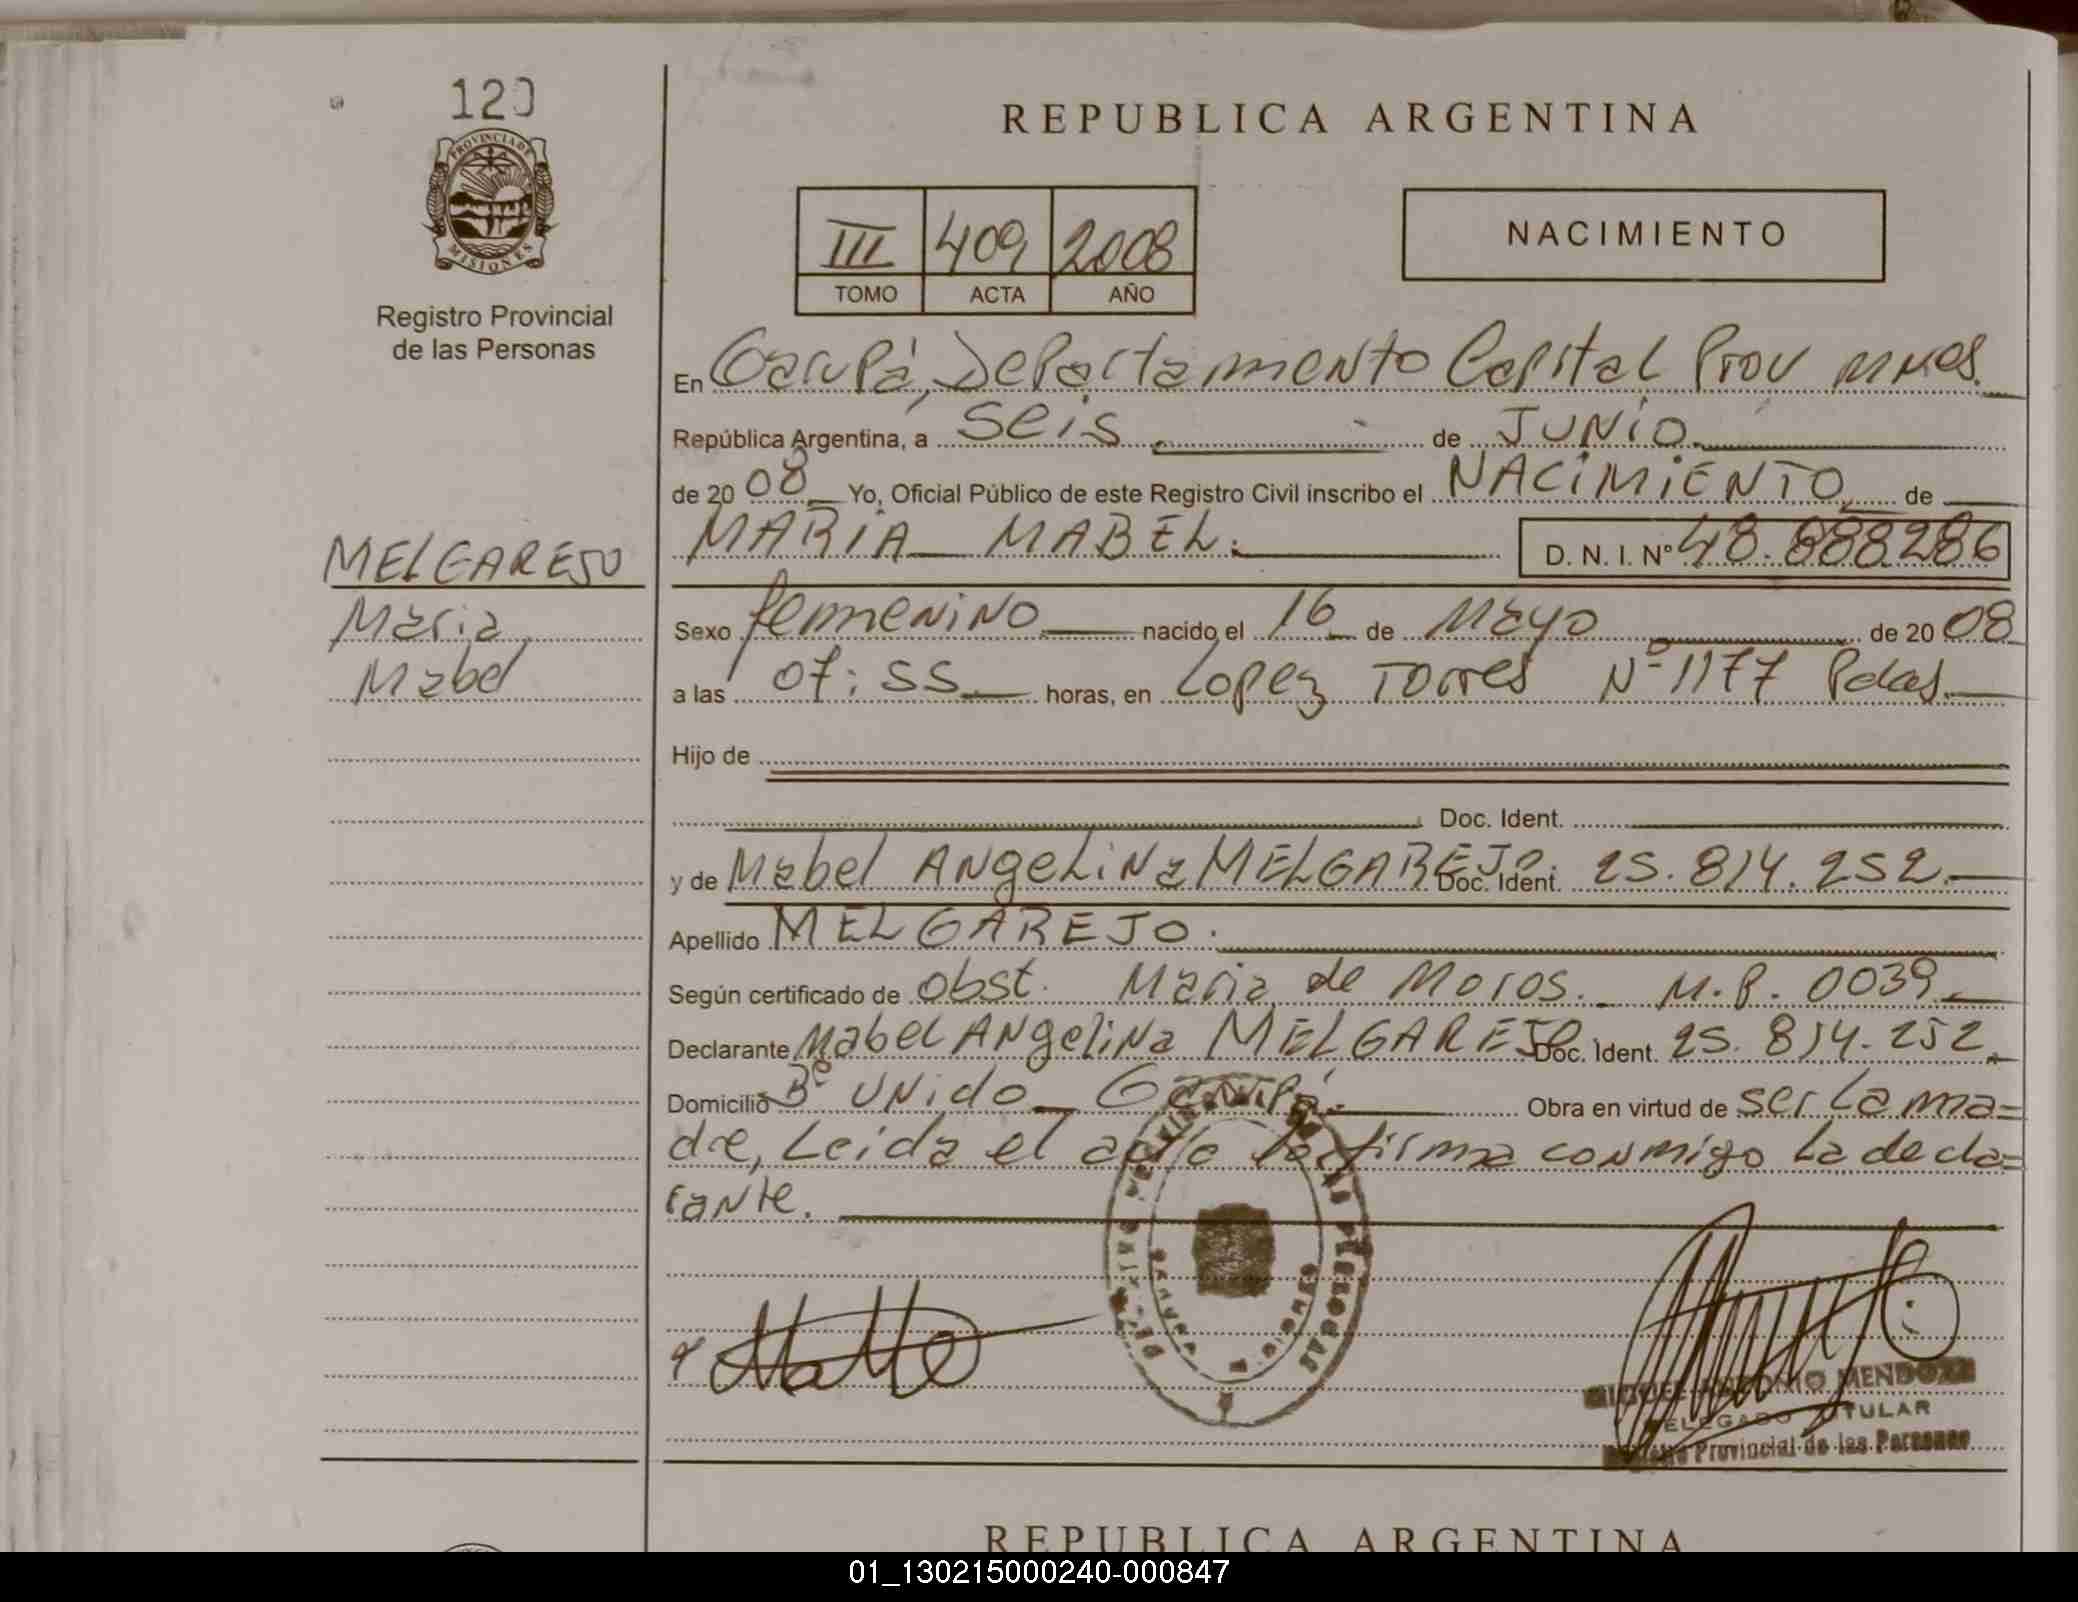 120
PROVINCIA DE
MISIONES
Registro Provincial
de las Personas
REPUBLICA ARGENTINA
III 409 2008
TOMO ACTA AÑO
NACIMIENTO
En Garupá, Departamento Capital Prov Mnes.
República Argentina, a seis de JUNIO
de 2008 Yo, Oficial Público de este Registro Civil inscribo el NACIMIENTO de
MARIA MABEL. D. N. I. Nº 48.888.286
MELGAREJO
Maria
Mabel
Sexo femenino nacido el 16 de Mayo de 2008
a las 07:55 horas, en Lopez Torres Nº 1177 Pdas.
Hijo de
Doc. Ident.
y de Mabel Angelina MELGAREJO. Doc. Ident. 25.814.252.
Apellido MELGAREJO.
Según certificado de Obst. Maria de Moros. M.P. 0039.
Declarante Mabel Angelina MELGAREJO Doc. Ident. 25.814.252
Domicilio Bº Unido Garupá. Obra en virtud de ser la ma=
dre, Leida el acta la firma conmigo la decla=
rante.
MIGUEL ANTONIO MENDOZA
DELEGADO TITULAR
Registro Provincial de las Personas
REPUBLICA ARGENTINA
01_130215000240-000847